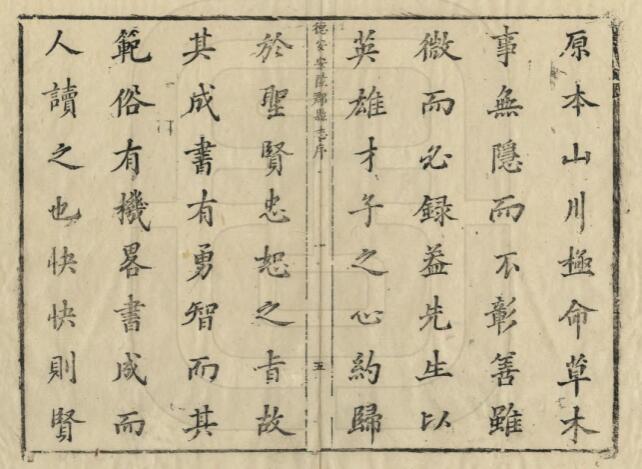 原本山川極命草木
事無隱而不彰善雖
微而必録益先生以
英雄才子之心約歸
德安安陸郡縣志序
五
於聖賢忠恕之旨故
其成書有勇智而其
範俗有機畧書成而
人讀之也快快則賢